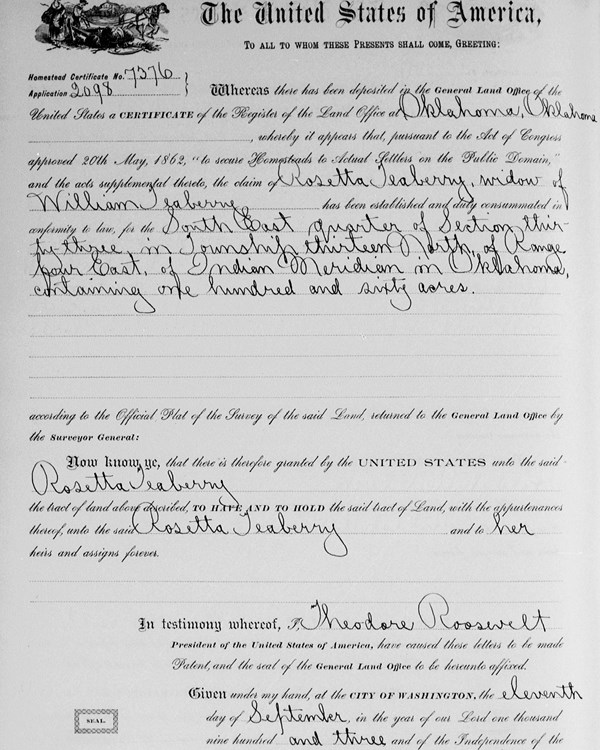 The United States of America,
TO ALL TO WHOM THESE PRESENTS SHALL COME, GREETING:
Homestead Certificate No. 7376
Application 2098
Whereas there has been deposited in the General Land Office of the
United States a CERTIFICATE of the Register of the Land Office at Oklahoma, Oklahoma
, whereby it appears that, pursuant to the Act of Congress
approved 20th May, 1862, "to secure Homesteads to Actual Settlers on the Public Domain,"
and the acts supplemental thereto, the claim of Rosetta Teaberry, widow of
William Teaberry has been established and duly consummated in
conformity to law, for the South East quarter of Section thir-
ty-three, in Township thirteen North, of Range
four East, of Indian Meridian in Oklahoma,
containing one hundred and sixty acres.
according to the Official Plat of the Survey of the said Land, returned to the General Land Office by
the Surveyor General:
Now know ye, that there is therefore granted by the UNITED STATES unto the said
Rosetta Teaberry
the tract of land above described, TO HAVE AND TO HOLD the said tract of Land, with the appurtenances
thereof, unto the said Rosetta Teaberry and to her
heirs and assigns forever.
In testimony whereof, I, Theodore Roosevelt
President of the United States of America, have caused these letters to be made
Patent, and the seal of the General Land Office to be hereunto affixed.
Given under my hand, at the CITY OF WASHINGTON, the eleventh
SEAL.
day of September, in the year of our Lord one thousand
nine hundred and three and of the Independence of the